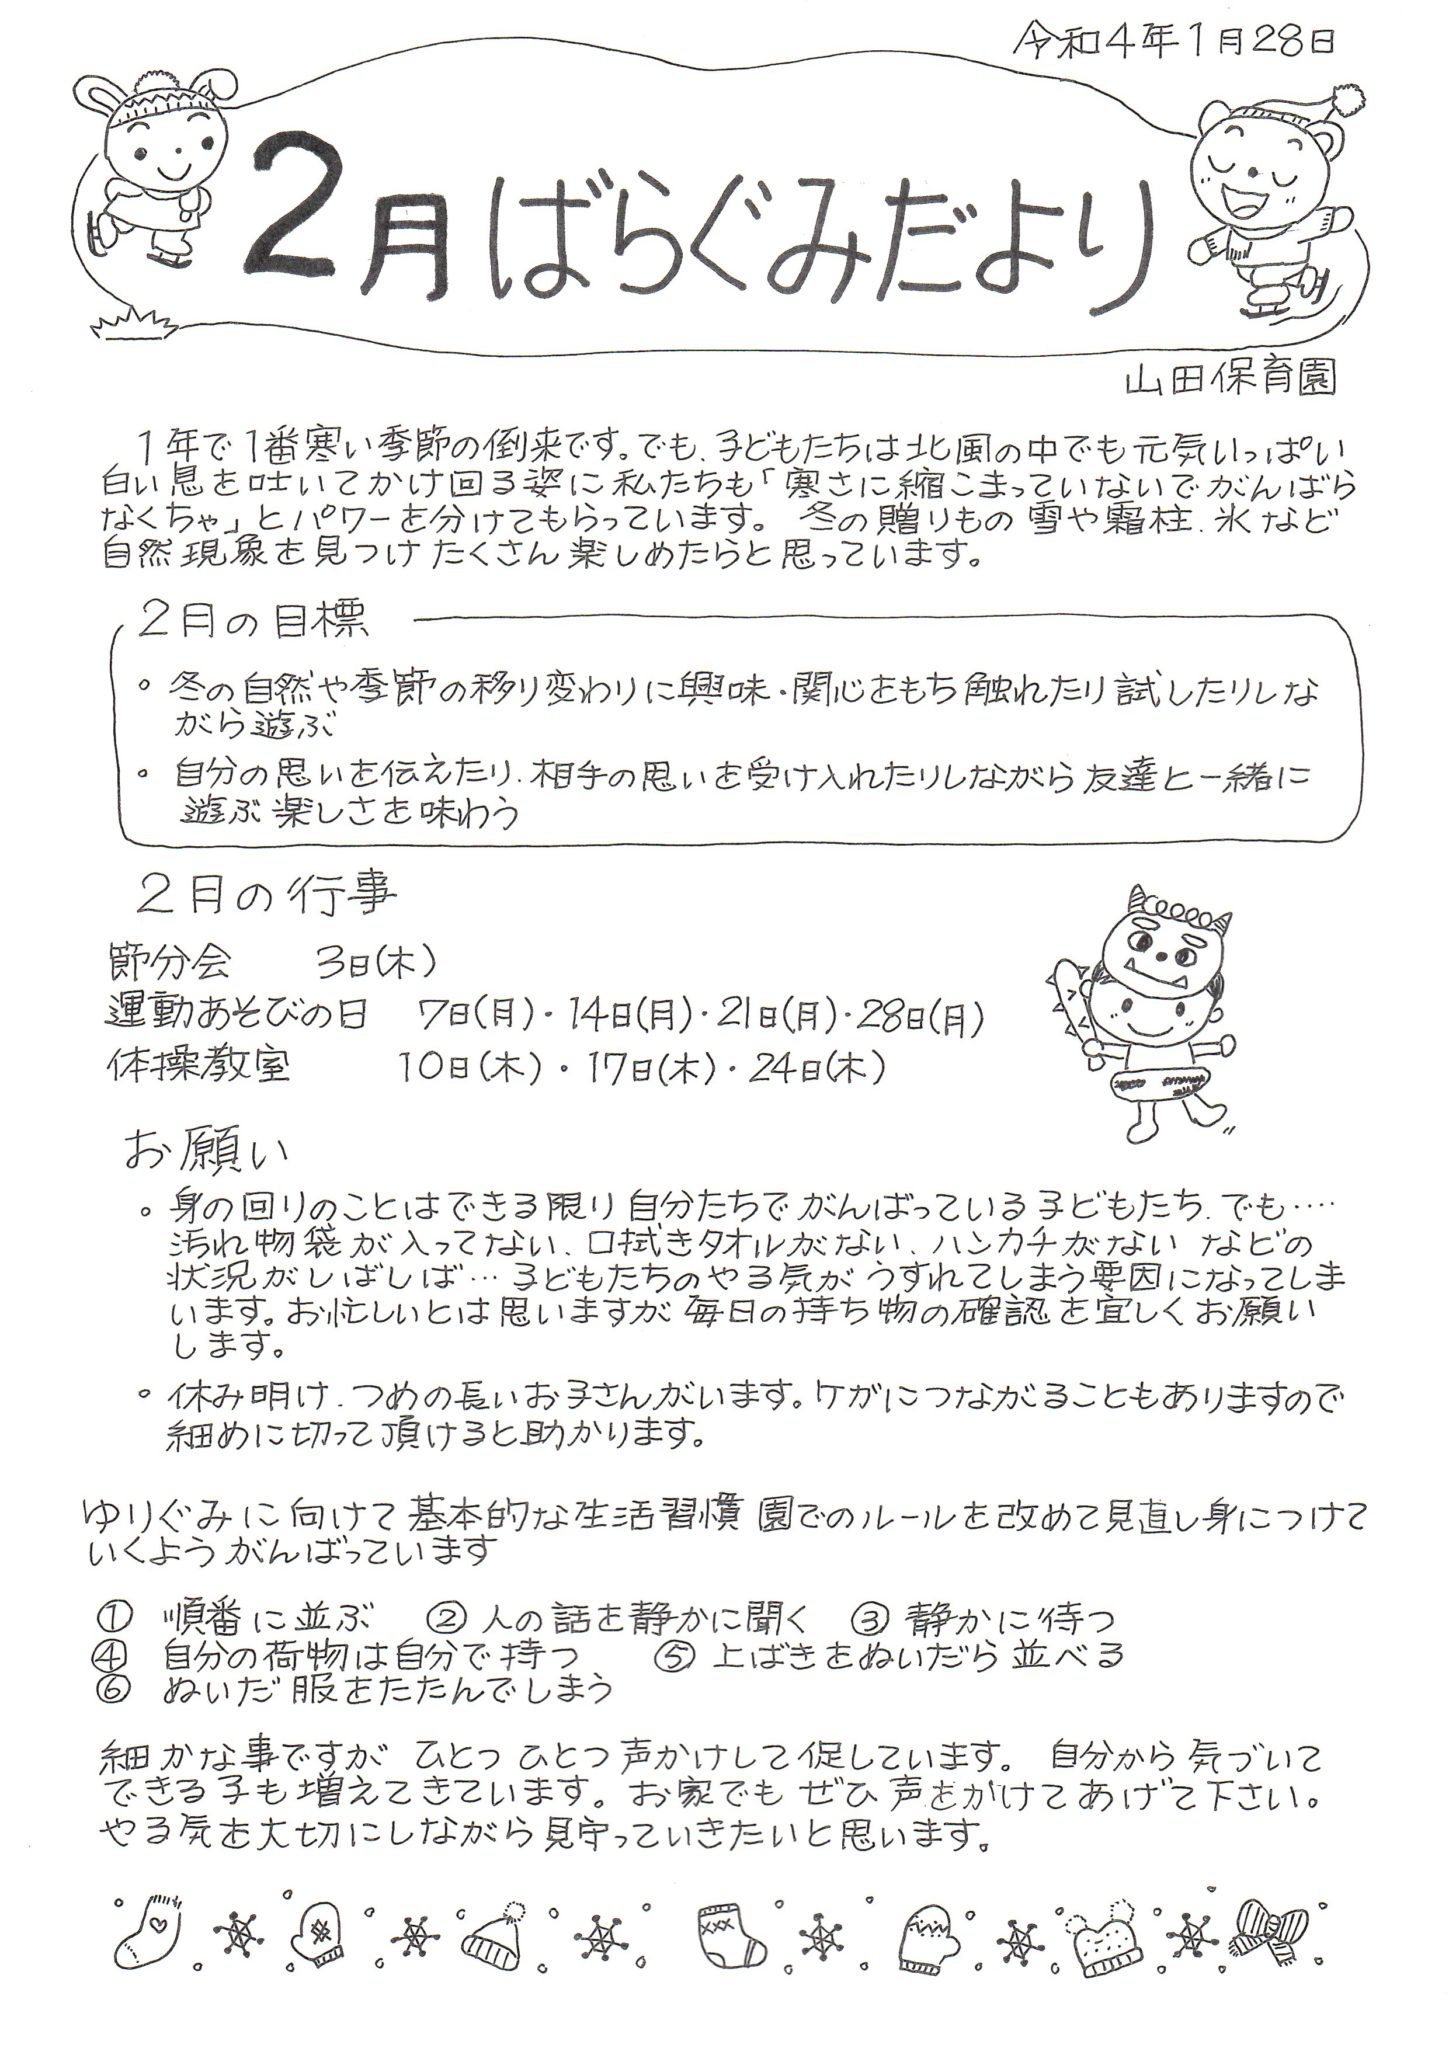 令和4年1月28日
2月ばらぐみだより
山田保育園
1年で1番寒い季節の倒来です。でも、子どもたちは北風の中でも元気いっぱい
白い息を吐いてかけ回る姿に私たちも「寒さに縮こまっていないでがんばら
なくちゃ」とパワーを分けてもらっています。 冬の贈りもの 雪や霜柱、氷など
自然現象を見つけたくさん楽しめたらと思っています。
2月の目標
・冬の自然や季節の移り変わりに興味・関心をもち触れたり試したりしな
がら遊ぶ
・自分の思いを伝えたり、相手の思いを受け入れたりしながら友達と一緒に
遊ぶ楽しさを味わう
2月の行事
節分会 3日(木)
運動あそびの日 7日(月)・14日(月)・21日(月)・28日(月)
体操教室 10日(木)・17日(木)・24日(木)
お願い
・身の回りのことはできる限り自分たちでがんばっている子どもたち、でも‥‥
汚れ物袋が入ってない、口拭きタオルがない、ハンカチがない などの
状況がしばしば…子どもたちのやる気がうすれてしまう要因になってしま
います。お忙しいとは思いますが毎日の持ち物の確認を宜しくお願い
します。
・休み明け、つめの長いお子さんがいます。ケガにつながることもありますので
細めに切って頂けると助かります。
ゆりぐみに向けて基本的な生活習慣 園でのルールを改めて見直し身につけて
いくようがんばっています
① 順番に並ぶ ② 人の話を静かに聞く ③ 静かに待つ
④ 自分の荷物は自分で持つ ⑤ 上ばきをぬいだら並べる
⑥ ぬいだ服をたたんでしまう
細かな事ですが ひとつひとつ声かけして促しています。 自分から気づいて
できる子も増えてきています。お家でも ぜひ声をかけてあげて下さい。
やる気を大切にしながら見守っていきたいと思います。